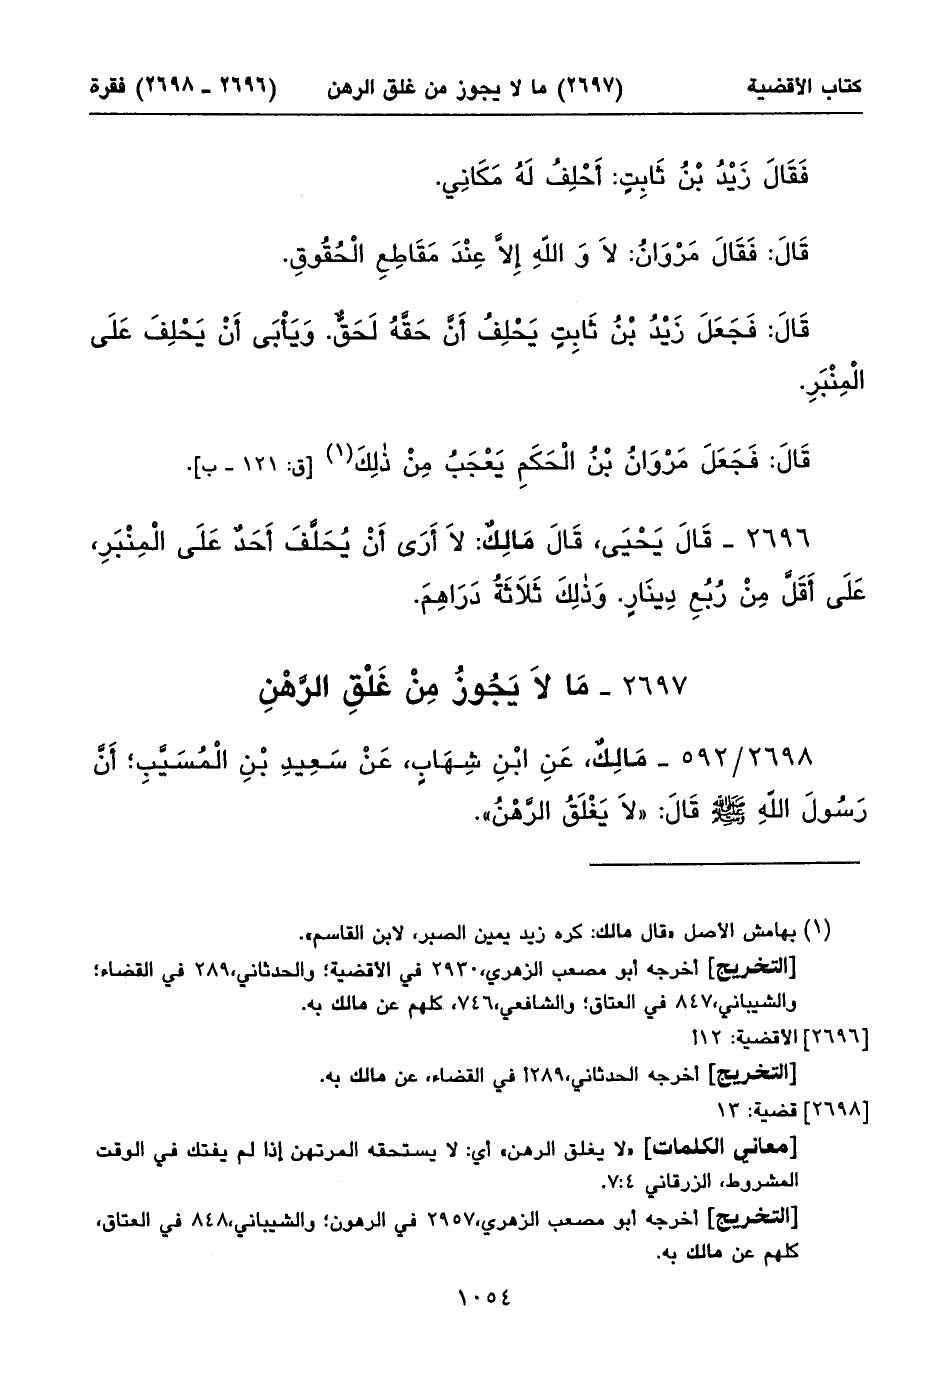 كتاب الأقضية (٢٦٩٧) ما لا يجوز من غلق الرهن (٢٦٩٦ ـ ٢٦٩٨) فقرة
فَقَالَ زَيْدُ بْنُ ثَابِتٍ: أَحْلِفُ لَهُ مَكَانِي.
قَالَ: فَقَالَ مَرْوَانُ: لاَ وَ اللّهِ إِلاَّ عِنْدَ مَقَاطِعِ الْحُقُوقِ.
قَالَ: فَجَعَلَ زَيْدُ بْنُ ثَابِتٍ يَحْلِفُ أَنَّ حَقَّهُ لَحَقٌّ. وَيَأْبَى أَنْ يَحْلِفَ عَلَى
الْمِنْبَرِ.
قَالَ: فَجَعَلَ مَرْوَانُ بْنُ الْحَكَمِ يَعْجَبُ مِنْ ذٰلِكَ(١) [ق: ١٢١ ـ ب].
٢٦٩٦ ـ قَالَ يَحْيَى، قَالَ مَالِكٌ: لاَ أَرَى أَنْ يُحَلَّفَ أَحَدٌ عَلَى الْمِنْبَرِ،
عَلَى أَقَلَّ مِنْ رُبُعِ دِينَارٍ. وَذٰلِكَ ثَلاَثَةُ دَرَاهِمَ.
٢٦٩٧ ـ مَا لاَ يَجُوزُ مِنْ غَلْقِ الرَّهْنِ
٥٩٢/٢٦٩٨ ـ مَالِكٌ، عَنِ ابْنِ شِهَابٍ، عَنْ سَعِيدِ بْنِ الْمُسَيَّبِ؛ أَنَّ
رَسُولَ اللّهِ ﷺ قَالَ: «لاَ يَغْلَقُ الرَّهْنُ».
(١) بهامش الأصل «قال مالك: كره زيد يمين الصبر، لابن القاسم».
[التخريج] أخرجه أبو مصعب الزهري،٢٩٣٠ في الأقضية؛ والحدثاني،٢٨٩ في القضاء؛
والشيباني،٨٤٧ في العتاق؛ والشافعي،٧٤٦، كلهم عن مالك به.
[٢٦٩٦] الأقضية: ١٢أ
[التخريج] أخرجه الحدثاني،٢٨٩أ في القضاء، عن مالك به.
[٢٦٩٨] قضية: ١٣
[معاني الكلمات] «لا يغلق الرهن» أي: لا يستحقه المرتهن إذا لم يفتك في الوقت
المشروط، الزرقاني ٧:٤.
[التخريج] أخرجه أبو مصعب الزهري،٢٩٥٧ في الرهون؛ والشيباني،٨٤٨ في العتاق،
كلهم عن مالك به.
١٠٥٤